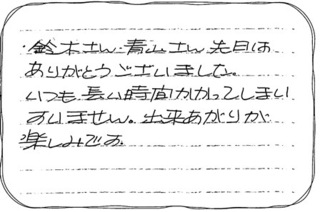 ・鈴木さん・青山さん 先日は
ありがとうございました。
いつも長い時間かかってしまい
すいません。出来あがりが
楽しみです。